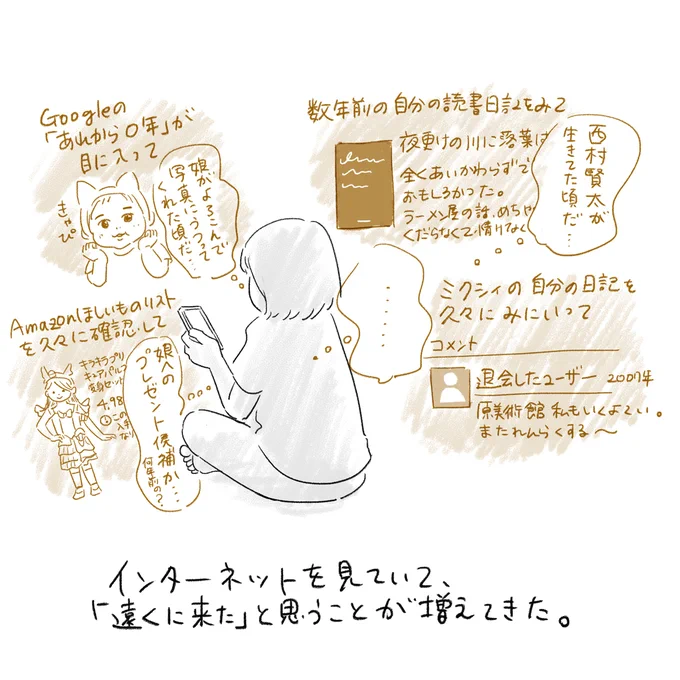 Googleの
「あれから〇年」が
目に入って
きゃぴ
娘がよろこんで
写真にうつって
くれた頃だ…
数年前の自分の読書日記をみて
夜更けの川に落葉は
全くあいかわらずで
おもしろかった。
ラーメン屋の話、めちゃ
くだらなくて情けなく
西村賢太が
生きてた頃だ…
Amazonほしいものリスト
を久々に確認して
キラキラプリ
キュアパルフ
変身セット
4,98
この
入
なり
娘への
プレゼント候補か…
何年前の?
……
ミクシィの自分の日記を
久々にみにいって
コメント
退会したユーザー 2007年
原美術館 私もいくよてい。
またれんらくする〜
インターネットを見ていて、
「遠くに来た」と思うことが増えてきた。